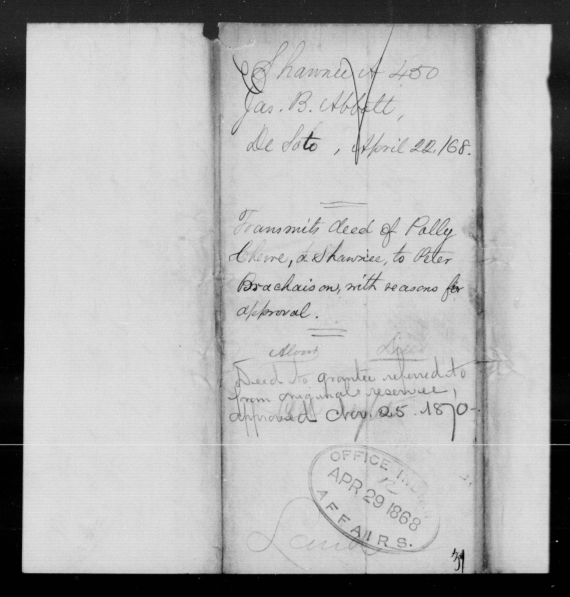 Shawnee A 450
Jas. B. Abbott,
De Soto, April 22, /68.
Transmits deed of Polly
Chewe, a Shawnee, to Peter
Brachaison, with reasons for
approval.
Deed to grantee referred to
from original reservee,
approved Nov. 25. 1870
OFFICE INDIAN
12
APR 29 1868
AFFAIRS.
Land